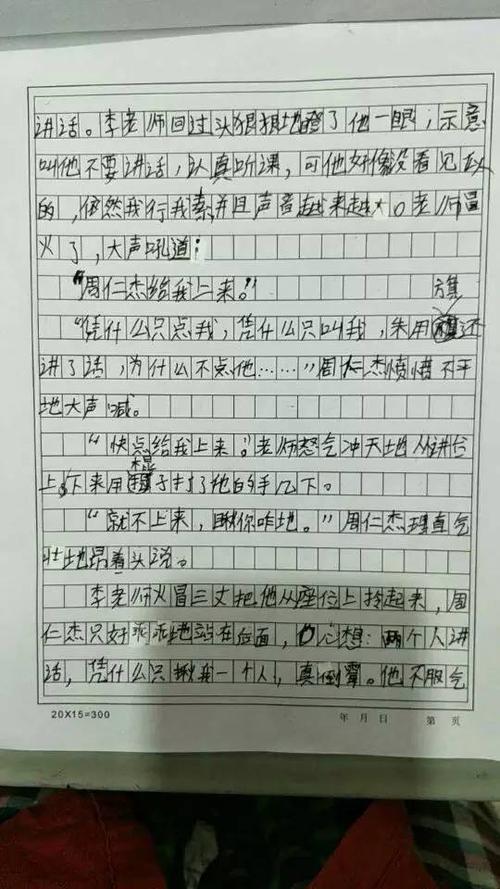 讲话。李老师回过头狠狠地瞪了他一眼，示意
叫他不要讲话，认真听课，可他好像没看见似
的，依然我行我素，并且声音越来越大。老师冒
火了，大声吼道：
“周仁杰给我上来。”
“凭什么只点我，凭什么只叫我，朱用旗还
讲了话，为什么不点他……”周仁杰愤愤不平
地大声喊。
“快点给我上来。”老师怒气冲天地从讲台
上下来用棍子打了他的手几下。
“就不上来，瞅你咋地。”周仁杰理直气
壮地昂着头说。
李老师火冒三丈把他从座位上拎起来，周
仁杰只好乖乖地站在后面，心想：两个人讲
话，凭什么只揪我一个人，真倒霉。他不服气
20X15=300 年 月 日 第 页